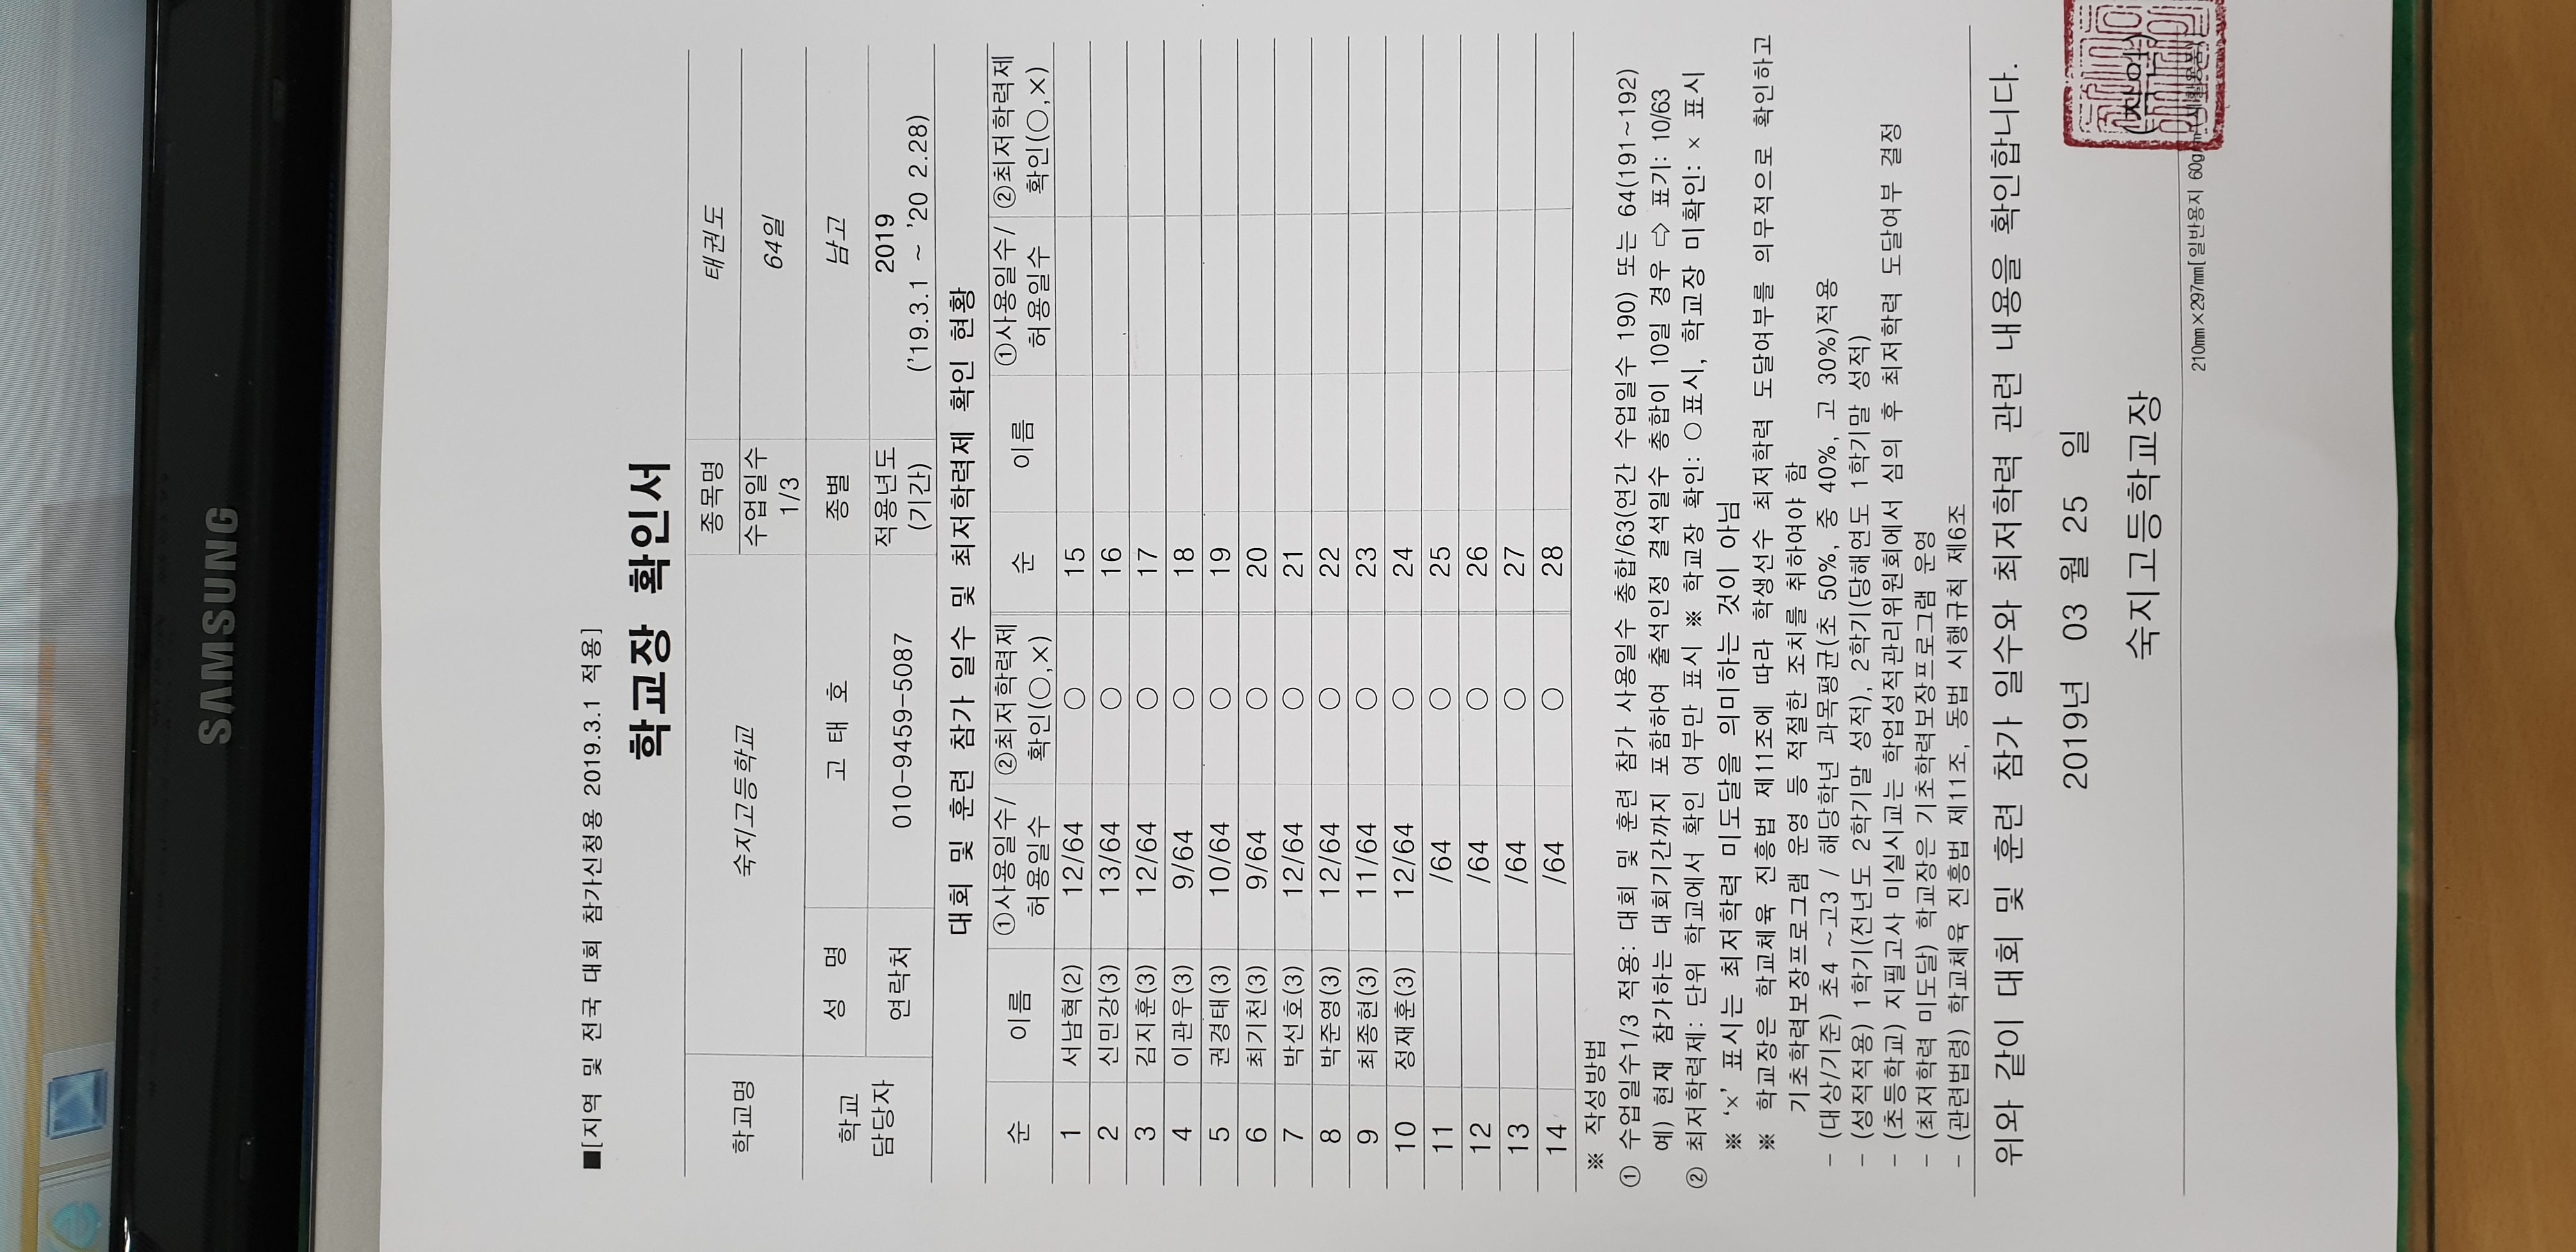 SAMSUNG
■[지역 및 전국 대회 참가신청용 2019.3.1 적용]
학교장 확인서
학교명 숙지고등학교 종목명 태권도
수업일수 1/3 64일
학교 담당자 성 명 고 태 호 종별 남고
연락처 010-9459-5087 적용년도 (기간) 2019 ('19.3.1 ~ '20 2.28)
대회 및 훈련 참가 일수 및 최저학력제 확인 현황
순 이름 ①사용일수/허용일수 ②최저학력제 확인(○,×) 순 이름 ①사용일수/허용일수 ②최저학력제 확인(○,×)
1 서남혁(2) 12/64 ○ 15
2 신민강(3) 13/64 ○ 16
3 김지훈(3) 12/64 ○ 17
4 이관우(3) 9/64 ○ 18
5 권경태(3) 10/64 ○ 19
6 최기천(3) 9/64 ○ 20
7 박선호(3) 12/64 ○ 21
8 박준영(3) 12/64 ○ 22
9 최종현(3) 11/64 ○ 23
10 정재훈(3) 12/64 ○ 24
11 /64 ○ 25
12 /64 ○ 26
13 /64 ○ 27
14 /64 ○ 28
※ 작성방법
① 수업일수1/3 적용: 대회 및 훈련 참가 사용일수 총합/63(연간 수업일수 190) 또는 64(191~192)
예) 현재 참가하는 대회기간까지 포함하여 출석인정 결석일수 총합이 10일 경우 ⇨ 표기: 10/63
② 최저학력제: 단위 학교에서 확인 여부만 표시 ※ 학교장 확인: ○표시, 학교장 미확인: × 표시
※ '×' 표시는 최저학력 미도달을 의미하는 것이 아님
※ 학교장은 학교체육 진흥법 제11조에 따라 학생선수 최저학력 도달여부를 의무적으로 확인하고
기초학력보장프로그램 운영 등 적절한 조치를 취하여야 함
- (대상/기준) 초4 ~고3 / 해당학년 과목평균(초 50%, 중 40%, 고 30%)적용
- (성적적용) 1학기(전년도 2학기말 성적), 2학기(당해연도 1학기말 성적)
- (초등학교) 지필고사 미실시교는 학업성적관리위원회에서 심의 후 최저학력 도달여부 결정
- (최저학력 미도달) 학교장은 기초학력보장프로그램 운영
- (관련법령) 학교체육 진흥법 제11조, 동법 시행규칙 제6조
위와 같이 대회 및 훈련 참가 일수와 최저학력 관련 내용을 확인합니다.
2019년 03 월 25 일
숙지고등학교장 (직인)
210㎜×297㎜[일반용지 60g/